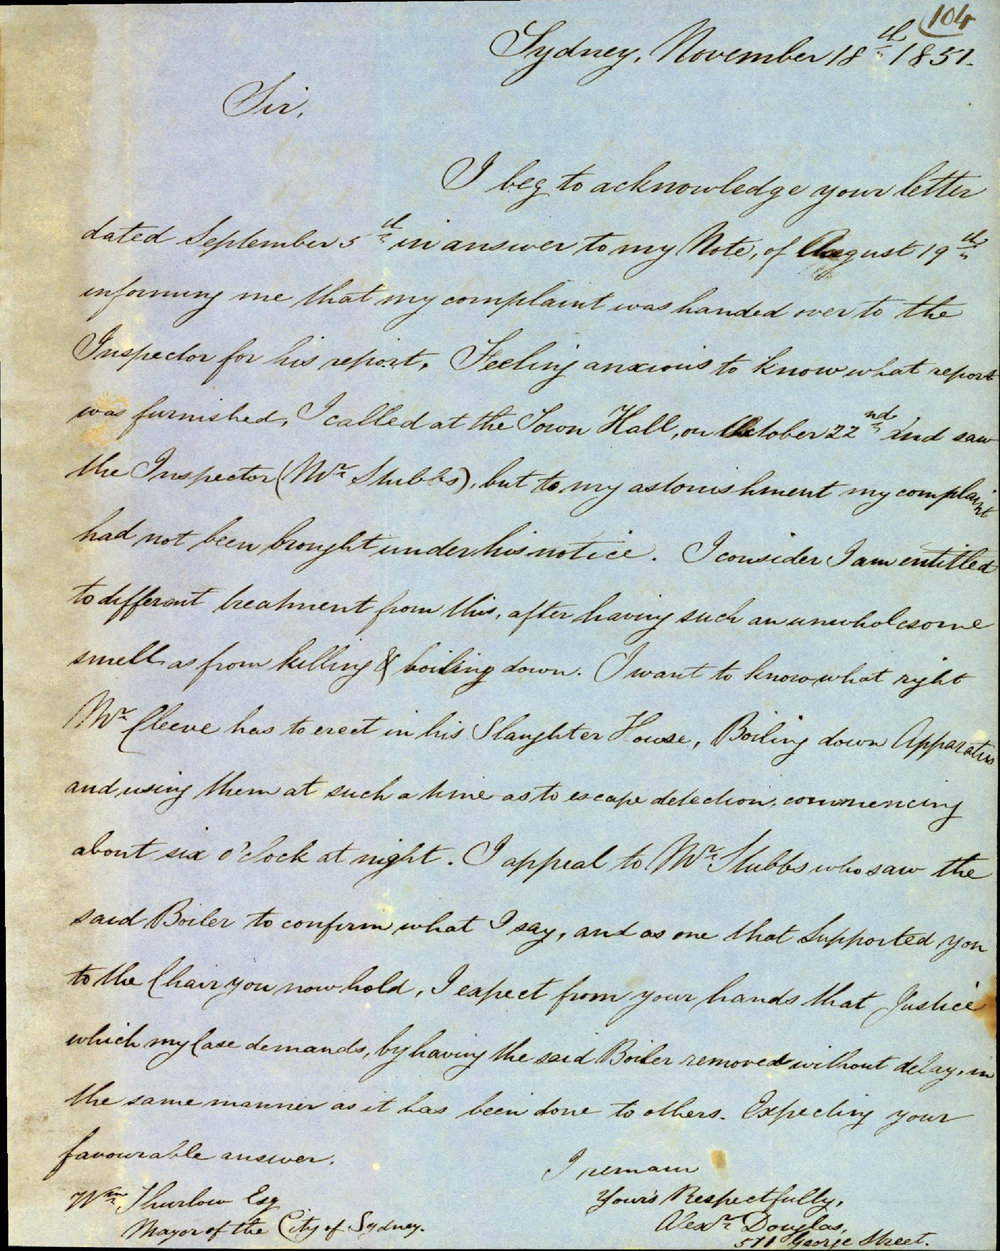 104
Sydney, November 18th 1851.
Sir,
I beg to acknowledge your letter
dated September 5th in answer to my Note, of August 19th
informing me that my complaint was handed over to the
Inspector for his report. Feeling anxious to know what report
was furnished, I called at the Town Hall, on October 22nd and saw
the Inspector (Mr Stubbs), but to my astonishment my complaint
had not been brought under his notice. I consider I am entitled
to different treatment from this, after having such an unwholesome
smell as from killing & boiling down. I want to know what right
Mr Cleeve has to erect in his Slaughter House, Boiling down Apparatus
and using them at such a time as to escape detection, commencing
about six o'clock at night. I appeal to Mr Stubbs who saw the
said Boiler to confirm what I say, and as one that Supported you
to the Chair you now hold, I expect from your hands that Justice
which my Case demands, by having the said Boiler removed without delay, in
the same manner as it has been done to others. Expecting your
favourable answer.
I remain
Your's Respectfully,
Alexr Douglas,
511 George Street.
Wm Thurlow Esq
Mayor of the City of Sydney.